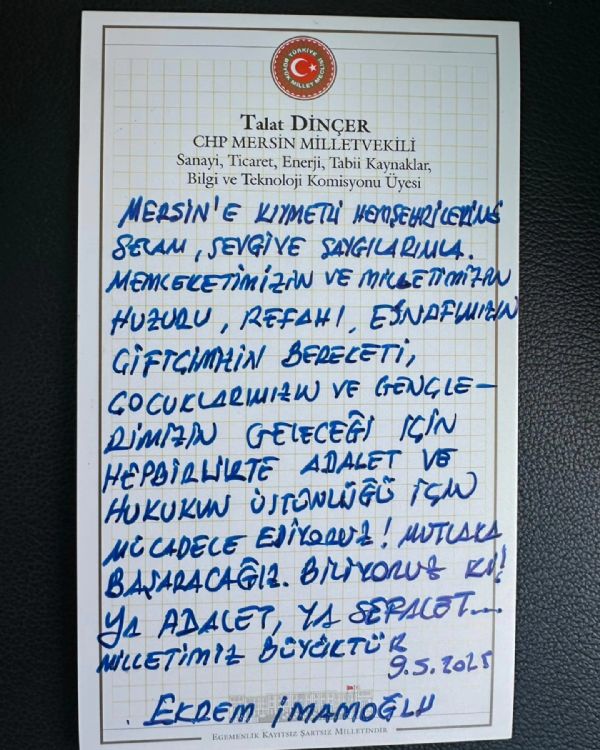 TÜRKİYE BÜYÜK MİLLET MECLİSİ
Talat DİNÇER
CHP MERSİN MİLLETVEKİLİ
Sanayi, Ticaret, Enerji, Tabii Kaynaklar,
Bilgi ve Teknoloji Komisyonu Üyesi
MERSİN'E KIYMETLİ HEMŞEHRİLERİME
SELAM, SEVGİ VE SAYGILARIMLA.
MEMLEKETİMİZİN VE MİLLETİMİZİN
HUZURU, REFAHI, ESNAFIMIZIN
ÇİFTÇİMİZİN BEREKETİ,
ÇOCUKLARIMIZIN VE GENÇLE-
RİMİZİN GELECEĞİ İÇİN
HEPBİRLİKTE ADALET VE
HUKUKUN ÜSTÜNLÜĞÜ İÇİN
MÜCADELE EDİYORUZ! MUTLAKA
BAŞARACAĞIZ. BİLİYORUZ Kİ!
YA ADALET, YA SEFALET....
MİLLETİMİZ BÜYÜKTÜR
9.5.2025
EKREM İMAMOĞLU
EGEMENLİK KAYITSIZ ŞARTSIZ MİLLETİNDİR